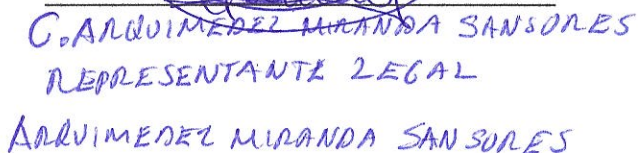 C. ARQUIMEDEZ MIRANDA SANSORES
REPRESENTANTE LEGAL
ARQUIMEDEZ MIRANDA SANSORES